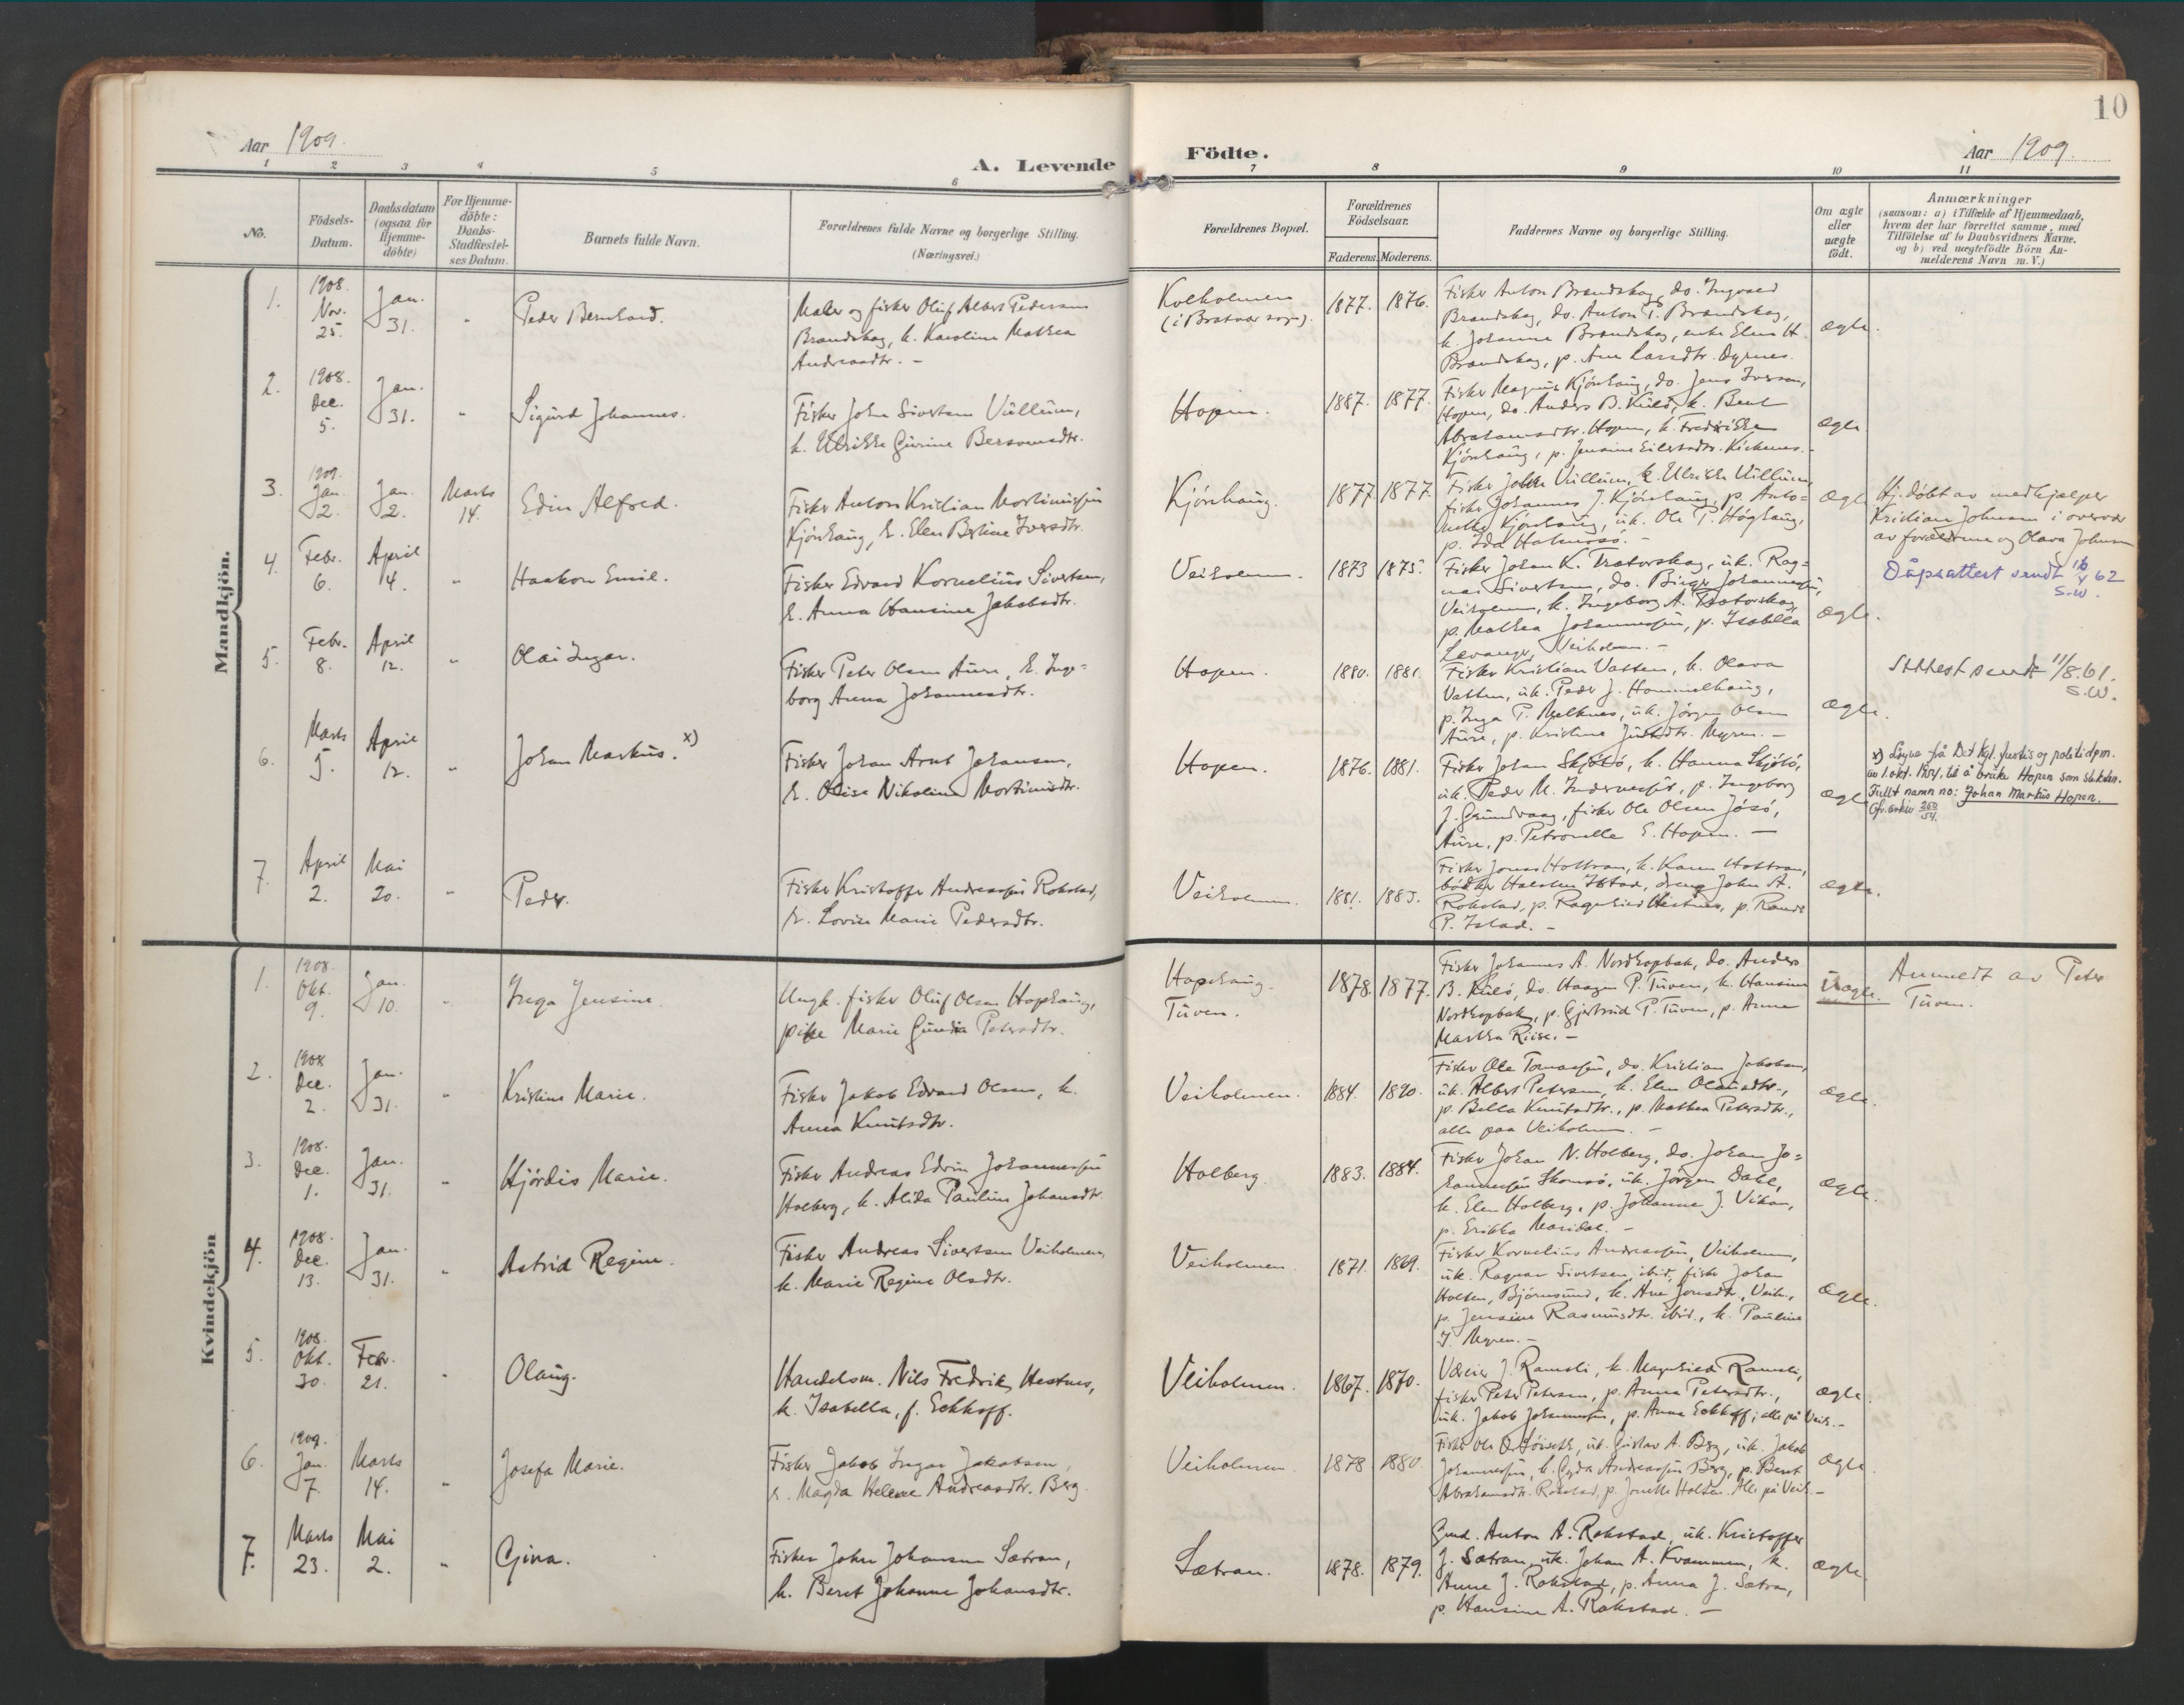 10
Aar 1909.
A. Levende Födte.
Aar 1909.
1 2 3 4 5 6 7 8 9 10 11
No.
Födsels-
Datum.
Daabsdatum
(ogsaa for
Hjemme-
döbte)
For Hjemme-
döbte:
Daabs-
Stadfæstel-
ses Datum.
Barnets fulde Navn.
Forældrenes fulde Navne og borgerlige Stilling.
(Næringsvei.)
Forældrenes Bopæl.
Forældrenes
Födselsaar.
Faderens. Moderens.
Faddernes Navne og borgerlige Stilling.
Om ægte
eller
uægte
födt.
Anmærkninger
(saasom: a) i Tilfælde af Hjemmedaab,
hvem der har forrettet samme, med
Tilföielse af to Daabsvidners Navne.
og b) ved uægtefödte Börn An-
melderens Navn m. V.)
Mandkjön.
1.
1908.
Nov.
25.
Jan.
31.
"
Peder Bernhard.
Maler og fisker Oluf Albert Pedersen
Brandskag, k. Karoline Mathea
Andreasdtr. -
Kolholmen
(i Bratvær sogn).
1877. 1876.
Fisker Anton Brandskag, do. Ingvald
Brandskag, do. Anton P. Brandskag,
k. Johanna Brandskag, enke Elen H.
Brandskag, p. Ane Larsdtr. Dyrnes.
ægte.
2.
1908.
Dec.
5.
Jan.
31.
"
Sigurd Johannes.
Fisker John Sivertsen Vullum,
k. Ulrikke Gurine Bersvendsdtr.
Hopen.
1887. 1877.
Fisker Magnus Kjönhaug, do. Jens Iversen,
Hopen, do. Anders B. Kulö, k. Beret
Abrahamsdtr. Hopen, k. Fredrikke
Kjönhaug, p. Jensine Eilertsdtr.
ægte
3.
1909.
Jan.
2.
Jan.
2.
Marts
14.
Edin Alfred.
Fisker Anton Kristian Mortinussen
Kjönhaug, k. Elen Berline Iversdtr.
Kjönhaug.
1877. 1877.
Fisker John Vullum, k. Ulrikke Vullum,
fisker Johannes J. Kjönhaug, p. Anto-
nette Kjönhaug, uk. Ole P. Höghaug,
p. Ida
ægte
Hj. döbt av medhjælper
Kristian Johnsen i overvær
av forældrene og Olava Johnsen
4.
Febr.
6.
April
4.
"
Haakon Emil.
Fisker Edvard Kornelius Sivertsen,
k. Anna Hansine Jakobsdtr.
Veiholmen.
1873 1875.
Fisker Johan K. Tratorskag, uk. Rag-
nar Sivertsen, do. Birger Johannessen,
Veiholmen, k. Ingeborg A. Tratorskag,
p. Mathea Johannessen, p. Isabella
Levanger, Veiholmen. -
ægte.
Dåpsattest sendt 16/X 62
S.W.
5.
Febr.
8.
April
12.
"
Olai Ingar.
Fisker Peter Olsen Aure, k. Inge-
borg Anna Johannesdtr.
Hopen.
1880. 1881.
Fisker Kristian Vatten, k. Olava
Vatten, uk. Peder J. Hommelhaug,
p. Inga P. Melknes, uk. Jörgen Olsen
Aure, p. Kristine Myren. -
ægte.
Attest sendt 11/8.61.
S.W.
6.
Marts
5.
April
12.
"
Johan Markus. x)
Fisker Johan Arnt Johansen,
k. Olise Nikoline Mortinusdtr.
Hopen.
1876. 1881.
Fisker Johan Skjölö, k. Hanna Skjölö,
uk. Peder M. , p. Ingeborg
J. Grundvaag, fisker Ole Olsen Jösö,
Aure, p. Petronelle E. Hopen. -
ægte
x) Löyve frå Det Kgl. Justis og politidpm.
av 1. okt. 1954, til å bruke Hopen som slektsn.
Fullt namn no: Johan Markus Hopen.
260/54.
7.
April
2.
Mai
20.
"
Peder.
Fisker Kristoffer Andreassen Rokstad,
k. Lovise Marie Pedersdtr.
Veiholmen.
1881. 1883.
Fisker Jonas Holtran, k. Karen Holtran,
bödker Halsten Ystad, dreng John A.
Rokstad, p. Ragnhild Hestnes, p. Randi
P. Istad. -
ægte.
Kvindekjön
1.
1908.
Okt.
9.
Jan.
10.
"
Inga Jensine.
Ungk. fisker Oluf Olsen Hopshaug,
pike Marie Gundia Petersdtr.
Hopshaug.
Tuven.
1878. 1877.
Fisker Johannes A. Nordhopbak, do. Anders
B. Kulö, do. Haagen P. Tuven, k. Hansine
Nordhopbak, p. Gjertrud P. Tuven, p. Anne
Martha Riise. -
Uægte.
Anmeldt av Peter
Tuven.
2.
1908
Dec.
2.
Jan.
31.
"
Kristine Marie.
Fisker Jakob Edvard Olsen, k.
Anna Knutsdtr.
Veiholmen.
1884. 1890.
Fisker Ole Tomassen, do. Kristian Jakobsen,
uk. Albert Petersen, k. Elen Olausdtr.,
p. Bella Knutsdtr., p. Mathea Petersdtr.,
alle paa Veiholmen. -
ægte.
3.
1908.
Dec.
1.
Jan.
31.
"
Hjördis Marie.
Fisker Andreas Edvin Johannessen
Holberg, k. Alida Pauline Johansdtr.
Holberg.
1883. 1884.
Fisker Johan N. Holberg, do. Johan Jo-
hannessen Skomsö, uk. Jörgen Dahl,
k. Elen Holberg, p. Johanne J. Vikan,
p. Erikka Maridal. -
ægte.
4.
1908.
Dec.
13.
Jan.
31.
"
Astrid Regine.
Fisker Andreas Sivertsen Veiholmen,
k. Marie Regine Olsdtr.
Veiholmen.
1871. 1869.
Fisker Kornelius Andreassen, Veiholmen,
uk. Ragnar Sivertsen, ibid., fisker Johan
Holten, Björnsund, k. Ane Jonsdtr., Veih.,
p. Jensine Rasmusdtr. ibid., k. Pauline
J. Myren. -
ægte.
5.
1908.
Okt.
30.
Febr.
21.
"
Olaug.
Handelsm. Nils Fredrik Hestnes,
k. Isabella, f. Eckhoff.
Veiholmen.
1867. 1870.
Væreier J. Ramsli, k. Magnhild Ramsli,
fisker Peter Petersen, p. Anna Petersdtr.,
uk. Jakob Johannessen, p. Anna Eckhoff; alle på Veih. -
ægte
6.
1909.
Jan.
7.
Marts
14.
"
Josefa Marie.
Fisker Jakob Ingar Jakobsen,
k. Magda Helene Andreasdtr. Berg.
Veiholmen.
1878 1880.
Fisker Ole , uk. Gustav A. Berg, uk. Jakob
Johannessen, k. Gyda Andreassen Berg, p. Beret
Abrahamsdtr. Rokstad, p. Jonette Holten. Alle på Veih. -
ægte
7.
Marts
23.
Mai
2.
"
Gina.
Fisker John Johansen Sætran,
k. Beret Johanne Johansdtr.
Sætran.
1878. 1879.
Gmd. Anton A. Rokstad, uk. Kristoffer
J. Sætran, uk. Johan A. Kvammen, k.
Anne J. Rokstad, p. Anna J. Sætran,
p. Hansine A. Rokstad. -
ægte